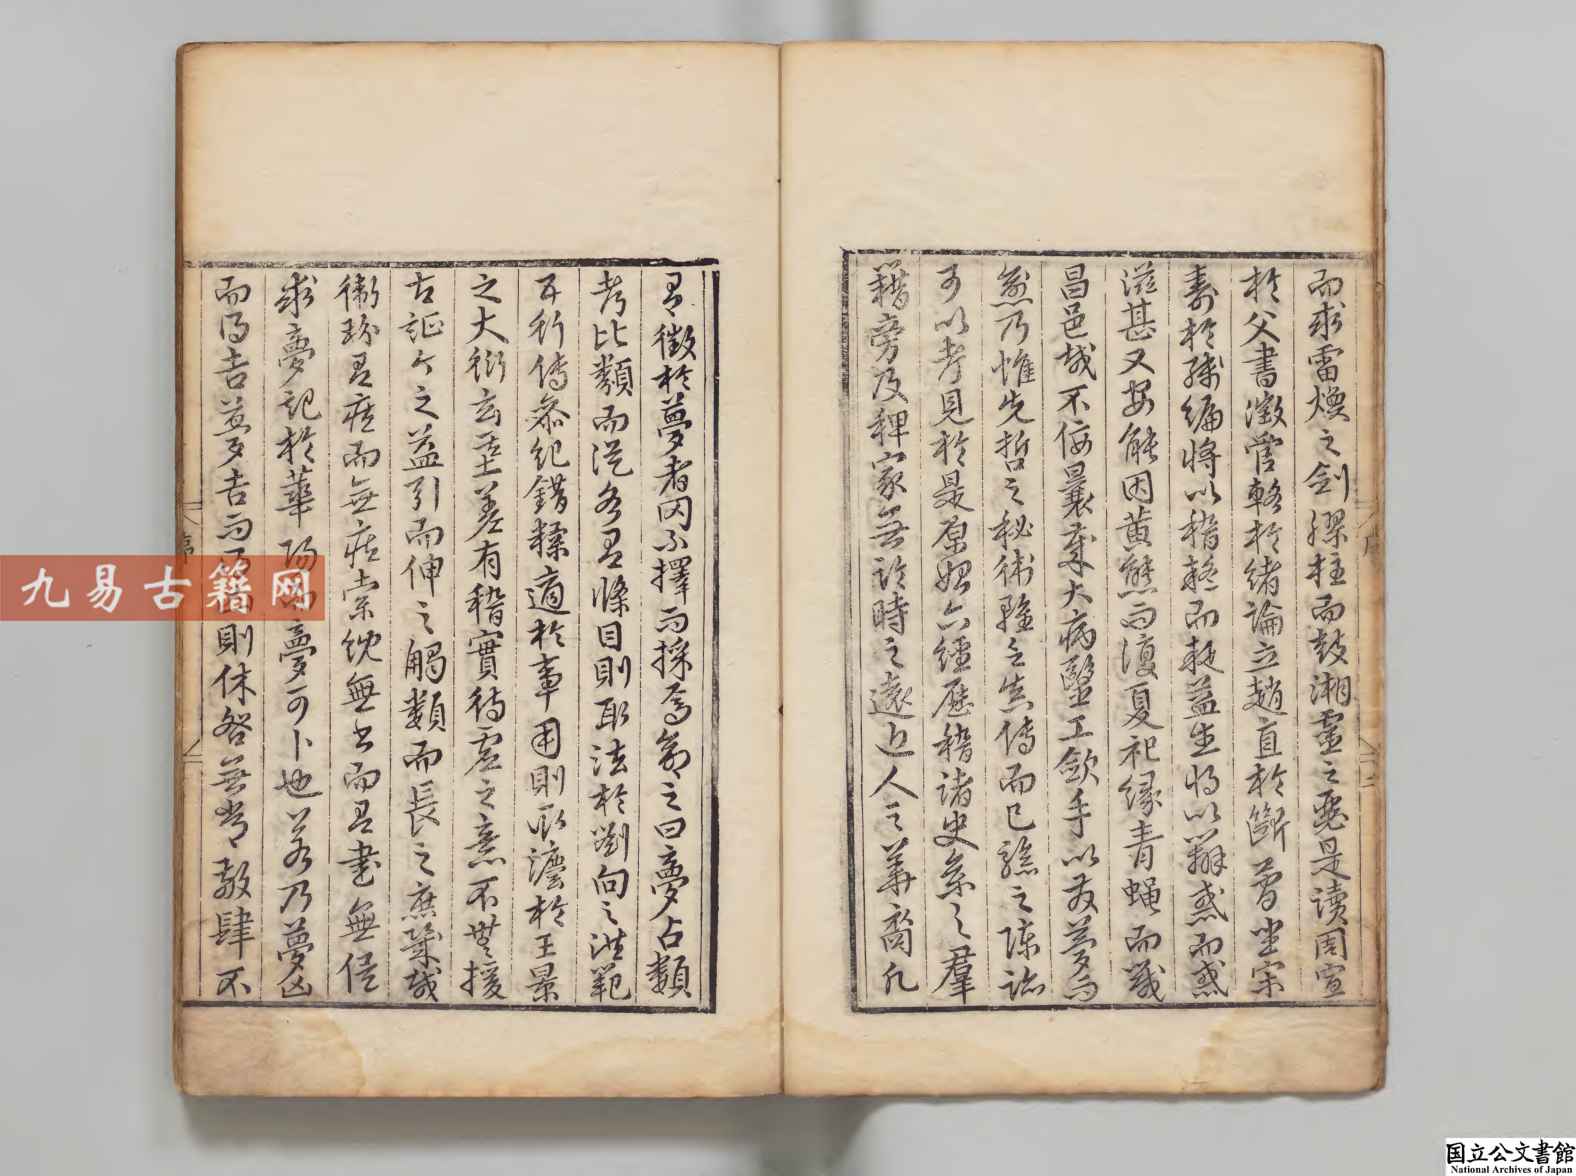 而求雷煥之劍膠柱而鼓湘靈之瑟是讀周宣
於父書澂管輅於緒論立趙直於斷 坐宗
壽於殘編將以稽疑而疑益生將以辨惑而惑
滋甚又安能因黃熊而復夏祀緣青蠅而戢
昌邑哉不佞曩歲大病醫工斂手以友夢而
愈乃惟先哲之秘術雖亡其傳而已驗之陳跡
可以考見於是原始六經歷稽諸史參之羣
籍旁及稗家無論時之遠近人之華裔凡
有徵於夢者罔不擇而採焉命之曰夢占類
考比類而從各有條目則取法於劉向之洪範
五行傳參紀錯糅適於事用則取法於王景
之大衍玄基差有稽實待虛之意不無援
古証今之益引而伸之觸類而長之庶幾哉
衛玠有疾而無疾索紞無書而有書無俟
求夢記於華陽而夢可卜也若乃夢凶
而得吉夢吉而 則休咎無常敬肆不
序
二
九易古籍网
国立公文書館
National Archives of Japan